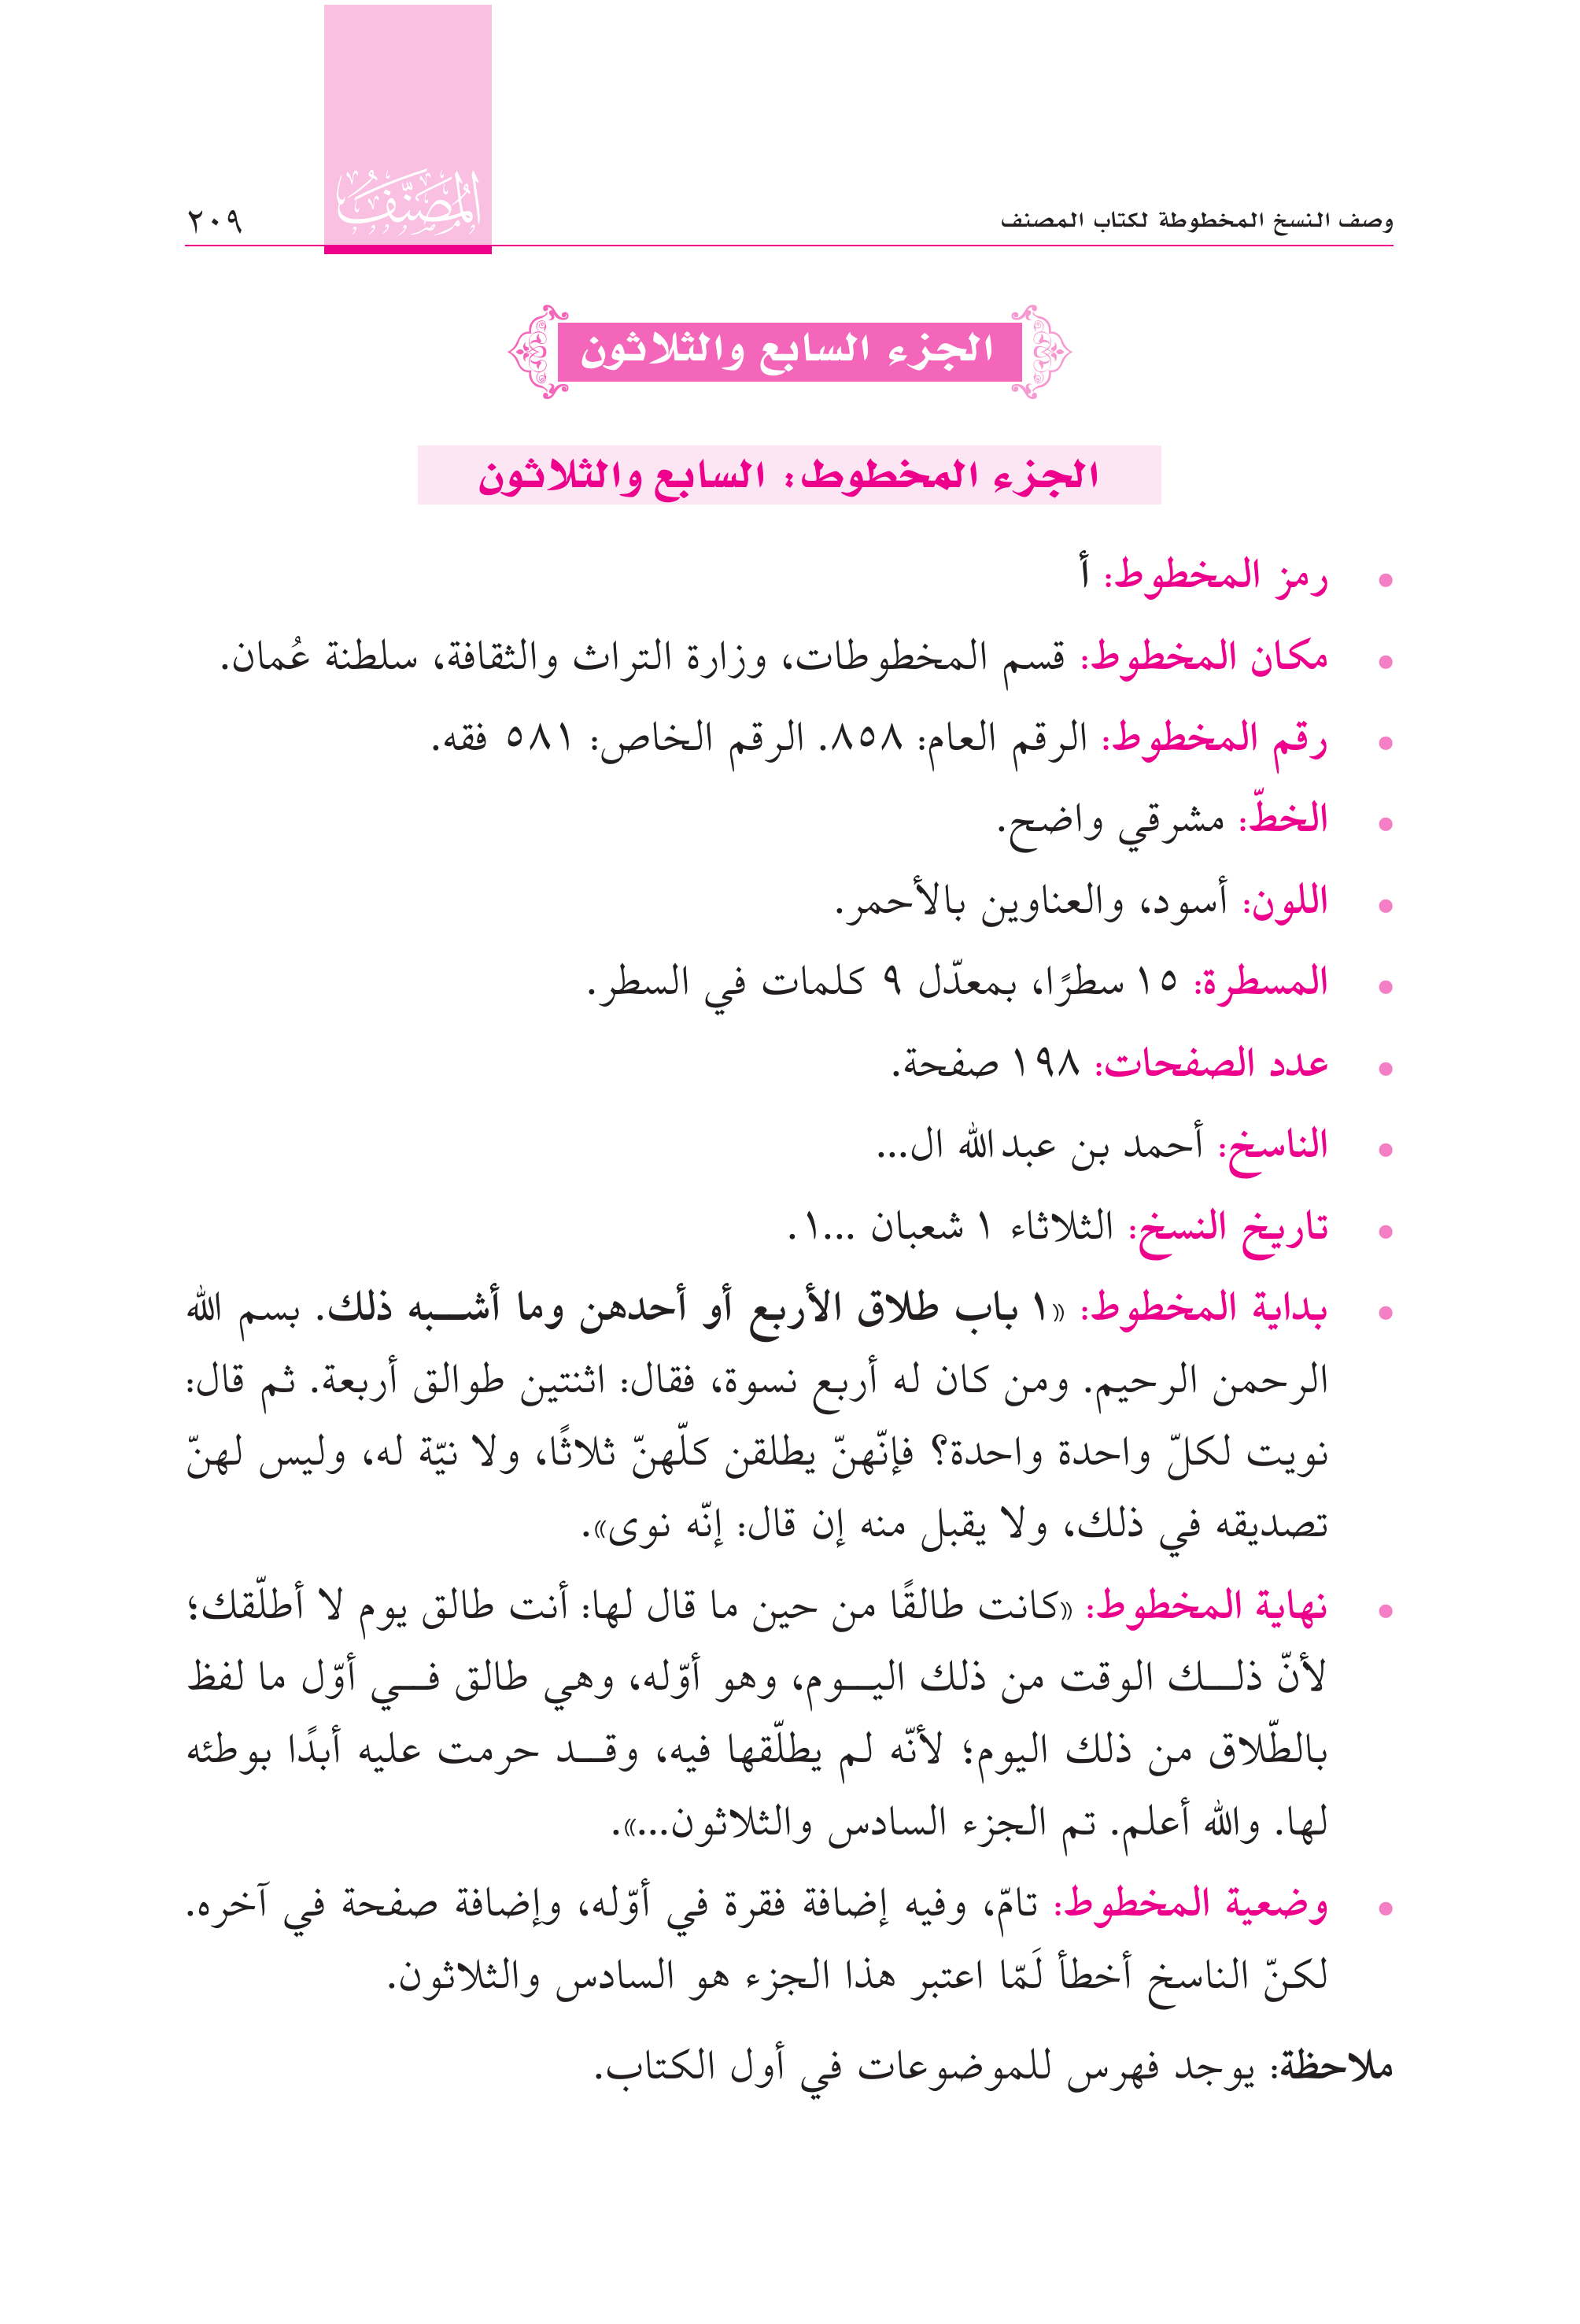 وصف النسخ المخطوطة لكتاب المصنف
المُصَنَّف
٢٠٩
الجزء السابع والثلاثون
الجزء المخطوط: السابع والثلاثون
• رمز المخطوط: أ
• مكان المخطوط: قسم المخطوطات، وزارة التراث والثقافة، سلطنة عُمان.
• رقم المخطوط: الرقم العام: ٨٥٨. الرقم الخاص: ٥٨١ فقه.
• الخطّ: مشرقي واضح.
• اللون: أسود، والعناوين بالأحمر.
• المسطرة: ١٥ سطرًا، بمعدّل ٩ كلمات في السطر.
• عدد الصفحات: ١٩٨ صفحة.
• الناسخ: أحمد بن عبدالله ال...
• تاريخ النسخ: الثلاثاء ١ شعبان ...١.
• بداية المخطوط: «١ باب طلاق الأربع أو أحدهن وما أشـــبه ذلك. بسم الله
الرحمن الرحيم. ومن كان له أربع نسوة، فقال: اثنتين طوالق أربعة. ثم قال:
نويت لكلّ واحدة واحدة؟ فإنّهنّ يطلقن كلّهنّ ثلاثًا، ولا نيّة له، وليس لهنّ
تصديقه في ذلك، ولا يقبل منه إن قال: إنّه نوى».
• نهاية المخطوط: «كانت طالقًا من حين ما قال لها: أنت طالق يوم لا أطلّقك؛
لأنّ ذلـــك الوقت من ذلك اليـــوم، وهو أوّله، وهي طالق فـــي أوّل ما لفظ
بالطّلاق من ذلك اليوم؛ لأنّه لم يطلّقها فيه، وقـــد حرمت عليه أبدًا بوطئه
لها. والله أعلم. تم الجزء السادس والثلاثون...».
• وضعية المخطوط: تامّ، وفيه إضافة فقرة في أوّله، وإضافة صفحة في آخره.
لكنّ الناسخ أخطأ لَمّا اعتبر هذا الجزء هو السادس والثلاثون.
ملاحظة: يوجد فهرس للموضوعات في أول الكتاب.